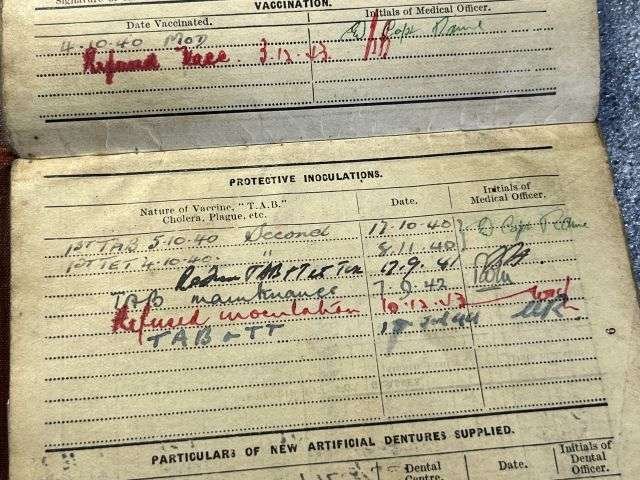 Signature of
VACCINATION.
Date Vaccinated. Initials of Medical Officer.
4.10.40 Capt
Refused Vacc. 3.12.43
PROTECTIVE INOCULATIONS.
Nature of Vaccine, "T.A.B."
Cholera, Plague, etc. Date. Initials of
Medical Officer.
1ST TAB 5.10.40 Second 17.10.40 Capt
1ST TET 4.10.40 " 8.11.40
TAB + Tet Tox 17.9.41
TAB maintenance 7.9.42
Refused inoculation 10.12.43
TAB + TT 44
6
PARTICULARS OF NEW ARTIFICIAL DENTURES SUPPLIED.
Dental
Centre. Date. Initials of
Dental
Officer.